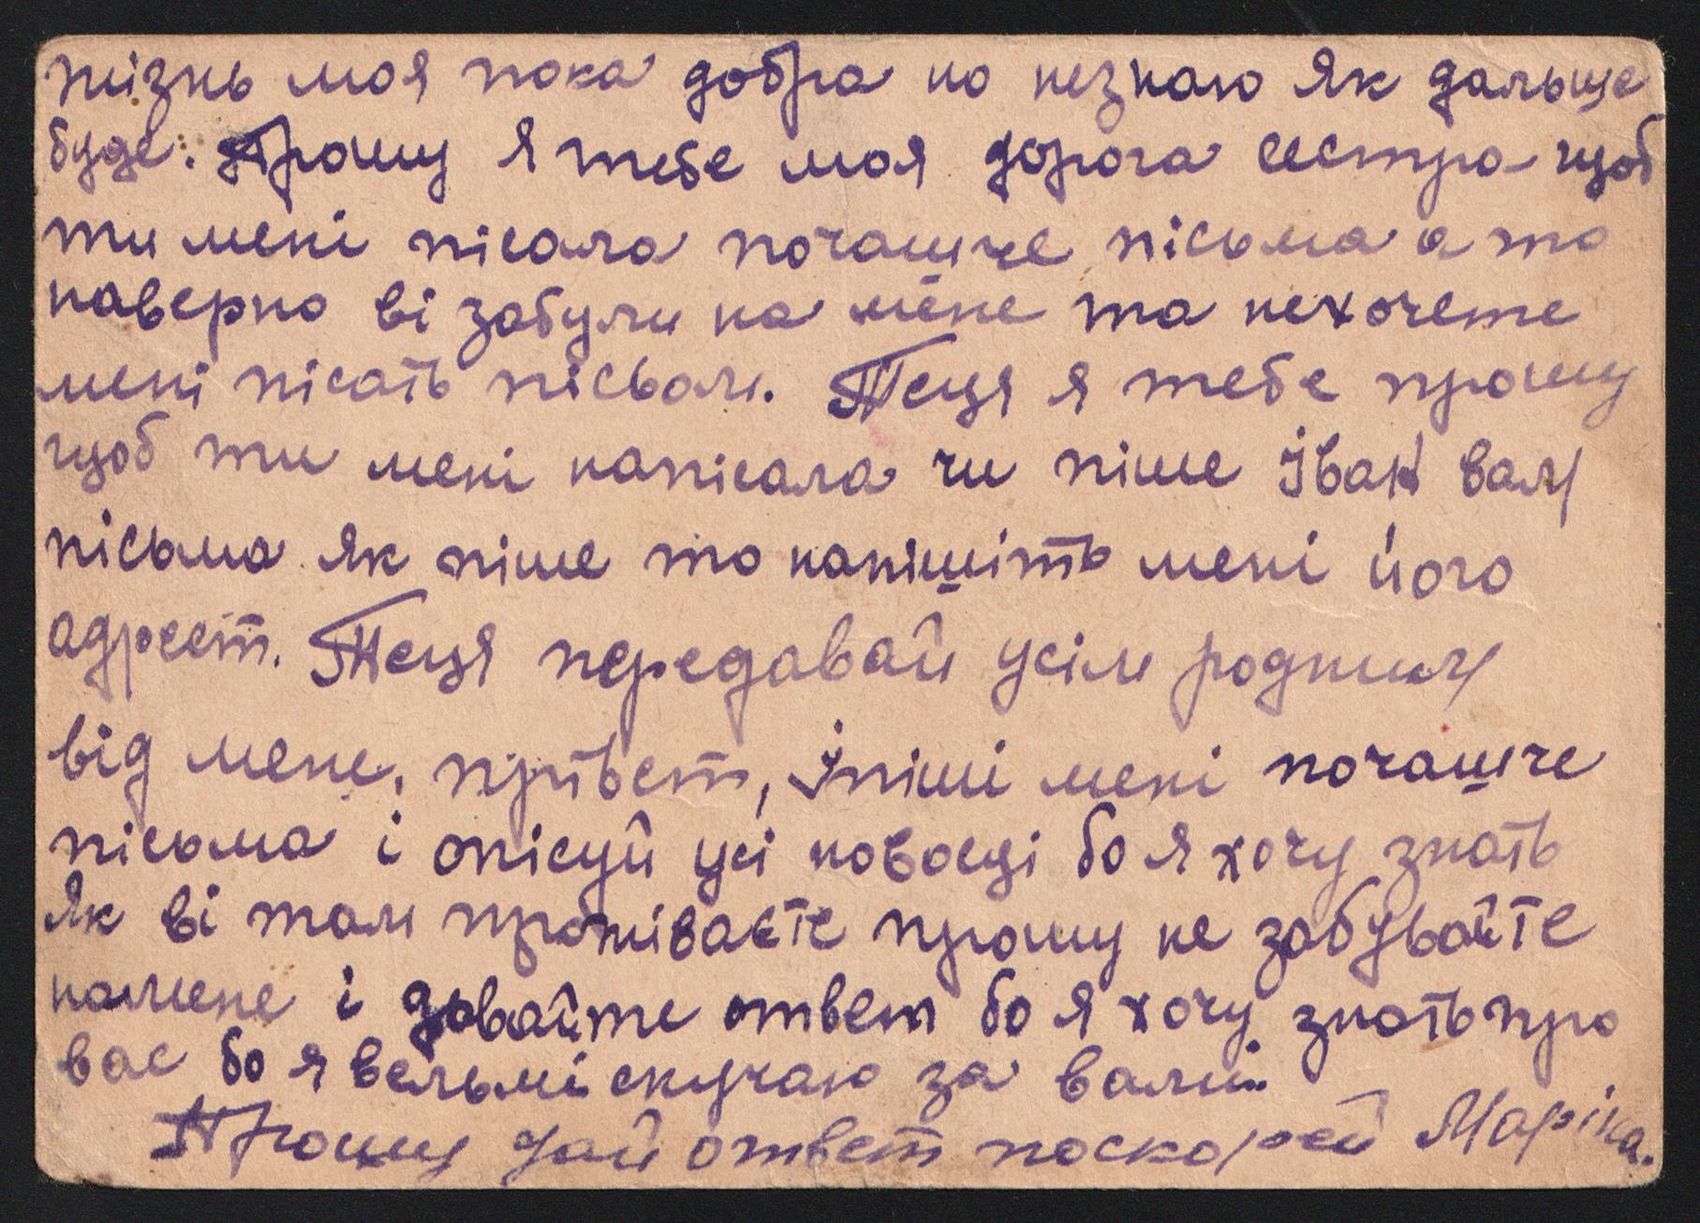 жізнь моя пока добра но незнаю як дальше
буде. Прошу я тебе моя дорога сестра щоб
ти мені пісала почашче пісьма а то
наверно ві забули на мене та нехочете
мені пісать пісьом. Теця я тебе прошу
щоб ти мені напісала чи піше Іван вам
пісьма як піше то напішіть мені його
адрест. Теця передавай усім родним
від мене, прівет, і піши мені почашче
пісьма і опісуй усі новосці бо я хочу знать
як ві там прожіваєте прошу не забувайте
намене і давайте ответ бо я хочу знать про
вас бо я вельмі скучаю за вами.
Прошу дай ответ поскорей Маріка.